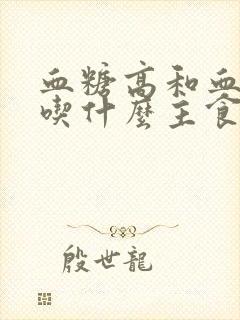 血糖高和血
喫什麼主食
殷世龍